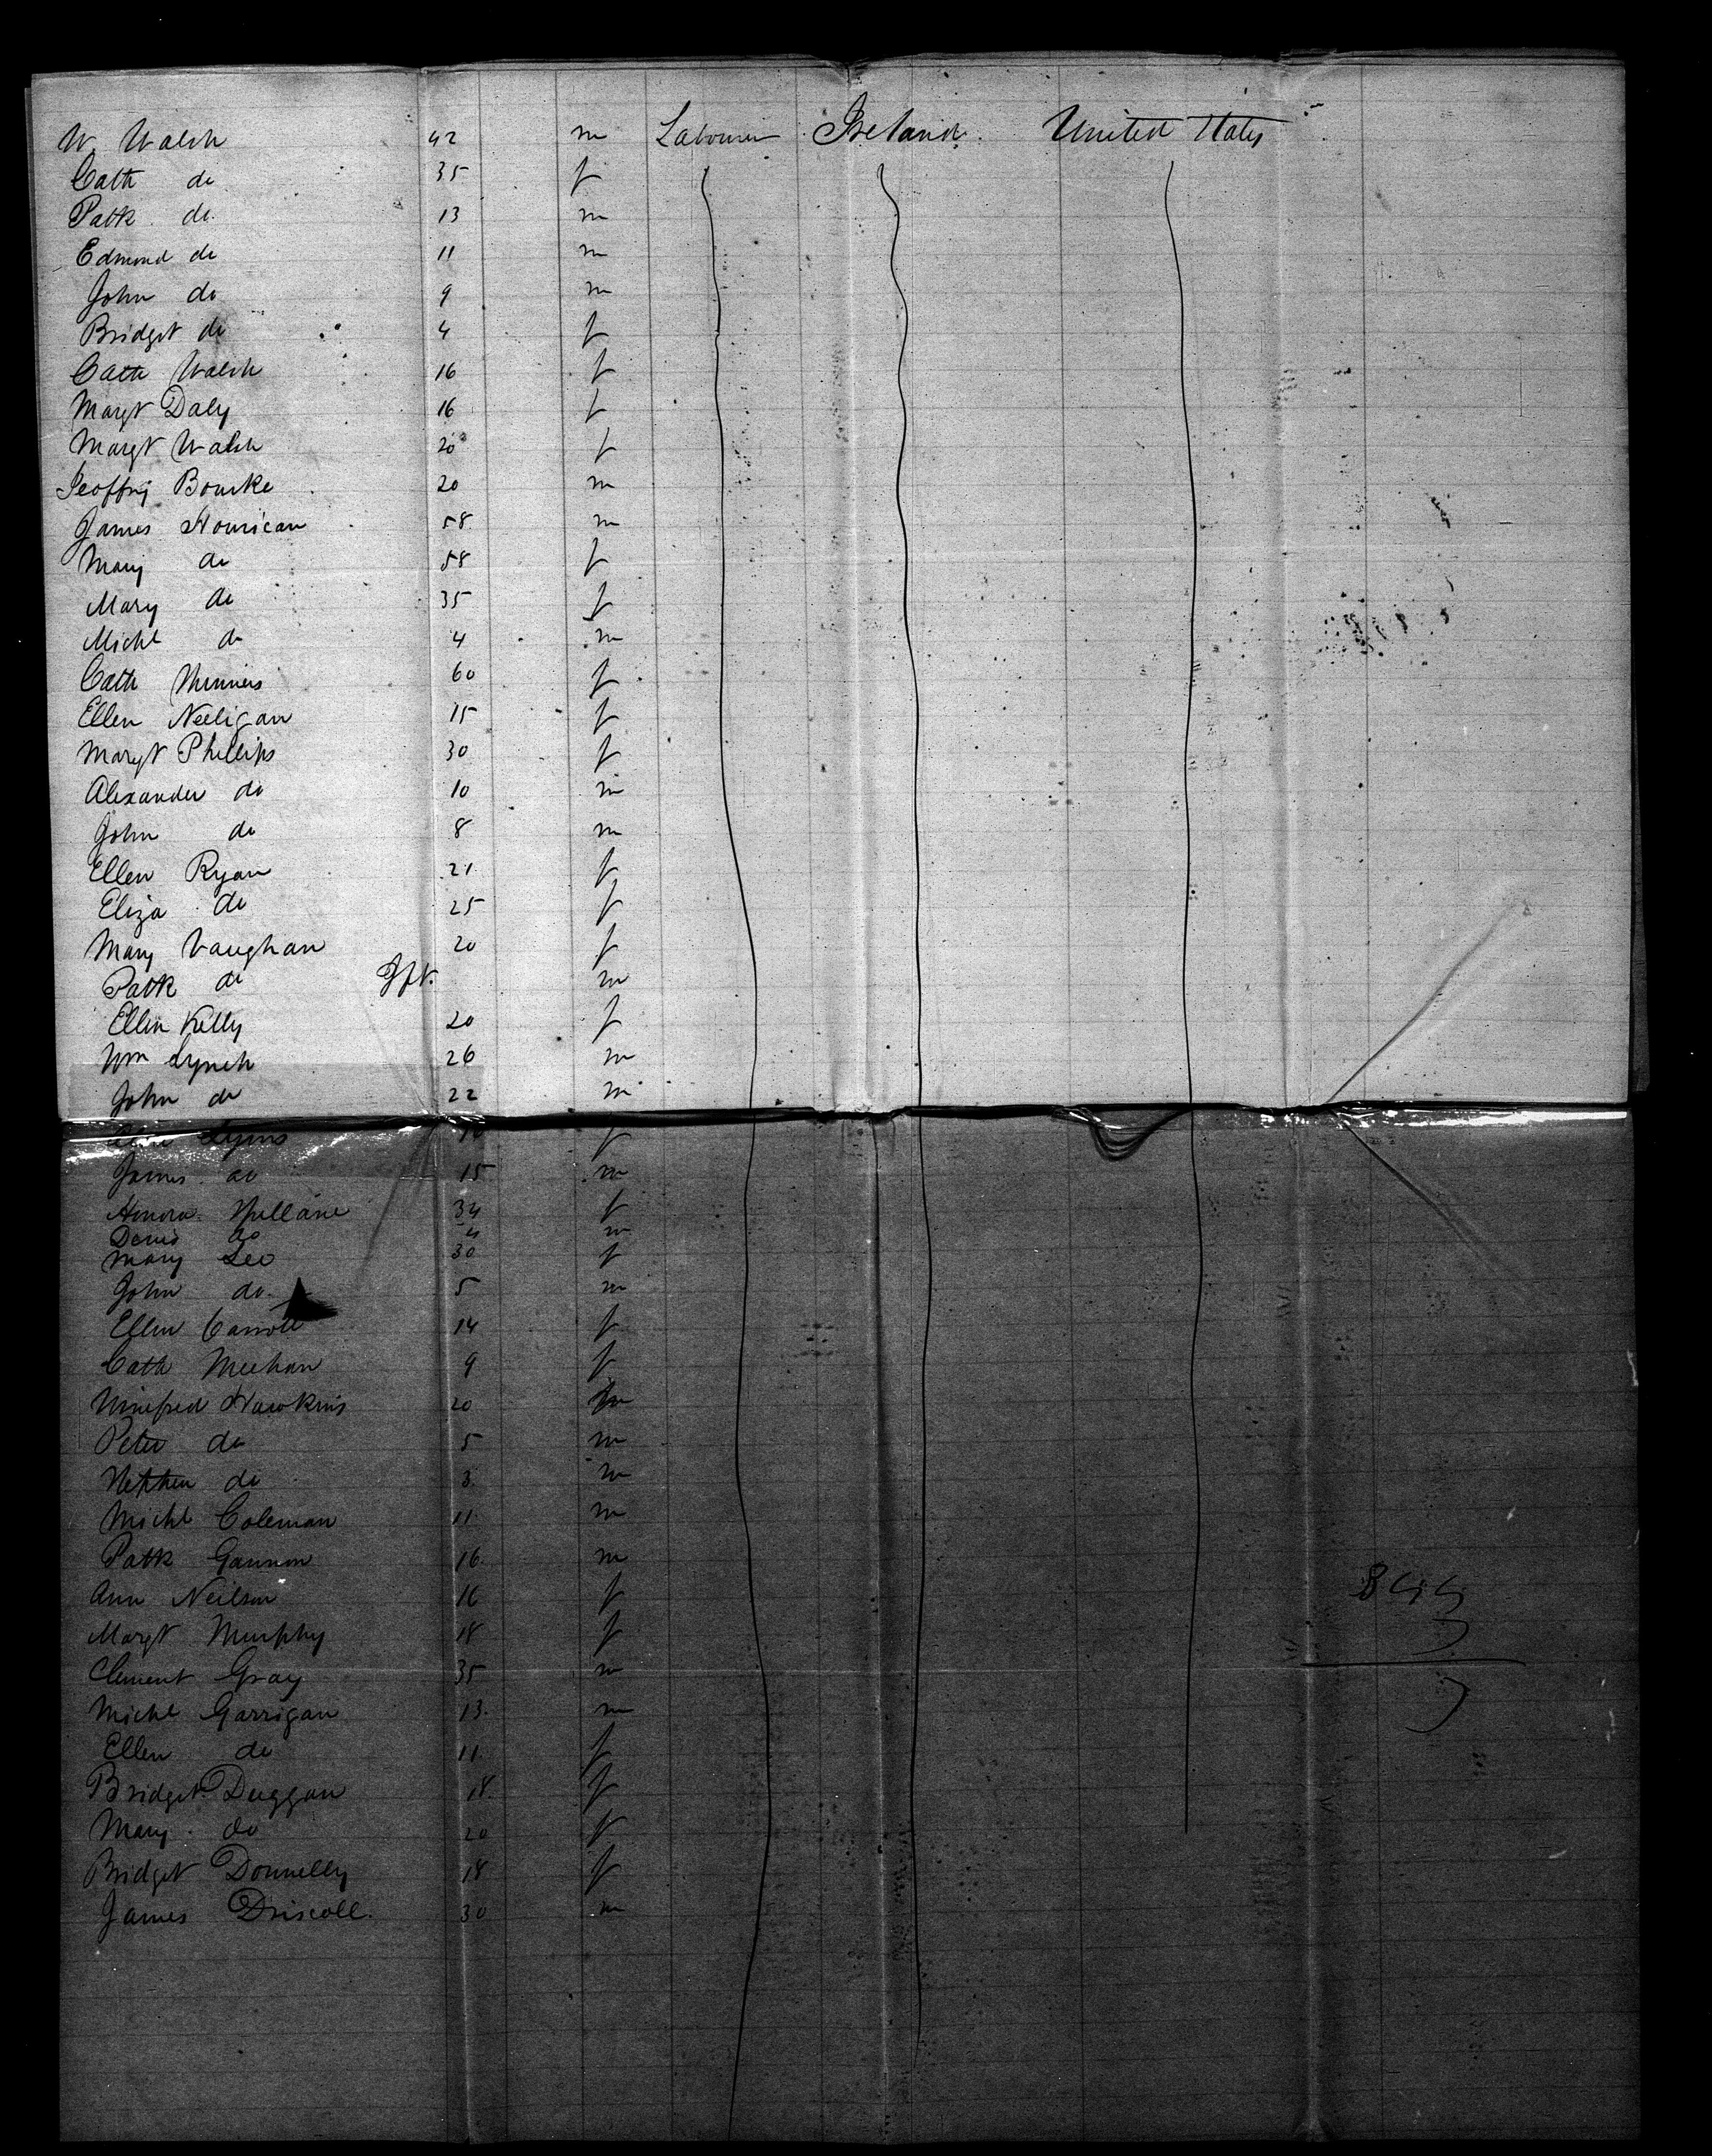 W Walsh 42 m Labourer Ireland United States
Cath do 35 f
Patk do 13 m
Edmond do 11 m
John do 9 m
Bridget do 4 f
Cath Walsh 16 f
Margt Daly 16 f
Margt Walsh 20 f
Geoffrey Bourke 20 m
James Hourican 58 m
Mary do 58 f
Mary do 35 f
Michl do 4 m
Cath 60 f
Ellen Neeligan 15 f
Margt Phillips 30 f
Alexander do 10 m
John do 8 m
Ellen Ryan 21 f
Eliza do 25 f
Mary Vaughan 20 f
Patk do Ift. m
Ellen Kelly 20 f
Wm Lynch 26 m
John do 22 m
Lyons f
James do 15 m
Honora 34 f
Denis do 4 m
Mary Leo 30 f
John do 5 m
Ellen Carroll 14 f
Cath Meehan 9 f
Winifred Hawkins 20
Peter do 5 m
do 3 m
Michl Coleman 11 m
Patk Gannon 16 m
Ann Neilson 16 f
Margt Murphy 18 f
Clement Gray 35 m
Michl Garrigan 13 m
Ellen do 11 f
Bridget Duggan 18 f
Mary do 20 f
Bridget Donnelly 18 f
James Driscoll. 30 m